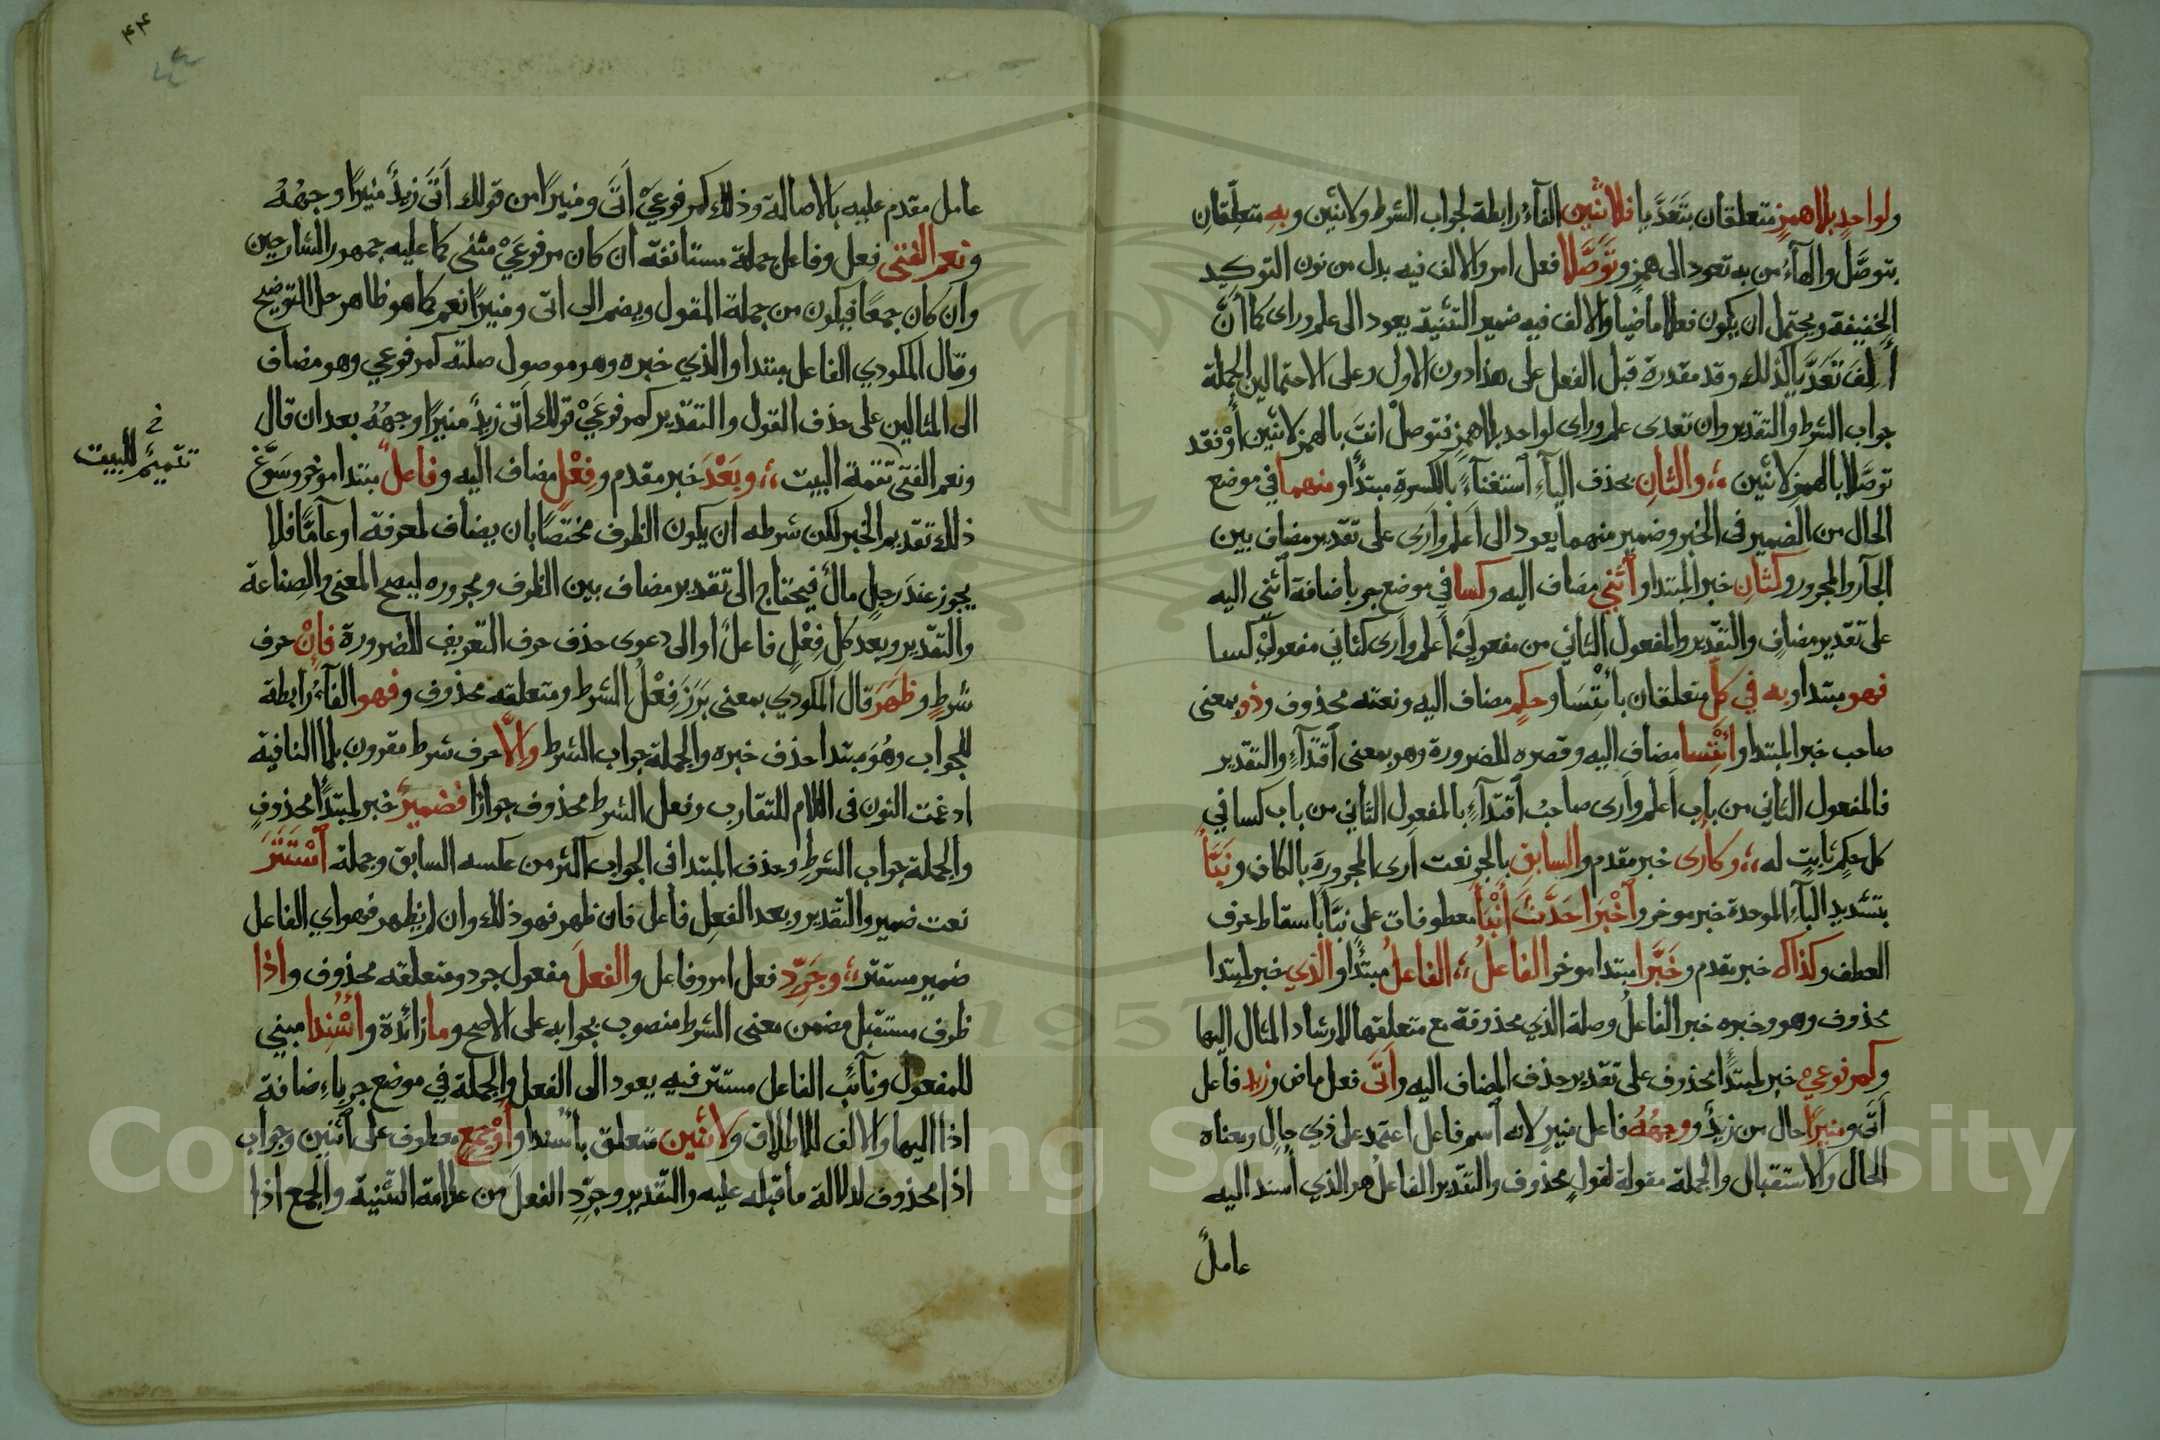 ولواحدٍ بلا همزٍ متعلقان بتَعَدَّيا فلاثنين الفآء رابطة لجواب الشرط ولاثنين وبه متعلقان
بتوصَّل والهآء من به تعود الى همز وتَوَصَّلا فعل امر والالف فيه بدل من نون التوكيد
الخفيفة ويحتمل ان يكون فعلا ماضيا والالف فيه ضمير التثنية يعود الى علم وراى كما أنَّ
أَلِفَ تَعَدَّيا كذلك وقد مقدرة قبل الفعل على هذا دون الاول وعلى الاحتمالين الجملة
جواب الشرط والتقدير وان تعدى علم وراى لواحد بلا همز فتوصلْ انتَ بالهمز لاثنين أوْ فقد
توصَّلا بالهمز لاثنين ؛ والثانِ بحذف اليآءِ استغنآءً بالكسرة مبتدأ ومنهما في موضع
الحال من الضمير في الخبر وضمير منهما يعود الى اعلم وارى على تقدير مضاف بين
الجار والمجرور وكثانِ خبر المبتدا واثنى مضاف اليه وكسا في موضع جر باضافة اثنى اليه
على تقدير مضاف والتقدير والمفعول الثاني من مفعولَيْ اعلم وارى كثاني مفعولَيْ كسا
فهو مبتدا وبه في كل متعلقان بائتسا وحكمٍ مضاف اليه ونعته محذوف وذو بمعنى
صاحب خبر المبتدا وائتسا مضاف اليه وقصره للضرورة وهو بمعنى اقتدآءٍ والتقدير
فالمفعول الثاني من باب اعلم وارى صاحبُ اقتدآءٍ بالمفعول الثاني من باب كسا في
كل حكمٍ ثابتٍ له ؛ وكأرى خبر مقدم والسابقِ بالجر نعت ارى المجرورة بالكاف ونَبَّأَ
بتشديد البآء الموحدة خبر موخر وأخْبَرا حَدَّثَ أَنْبَأ معطوفات على نبَّأ باسقاط حرف
العطف وكذاك خبر مقدم وخَبَّرا مبتدا موخر الفاعلُ ؛ الفاعلُ مبتدأ والذي خبر لمبتدا
محذوف وهو وخبره خبر الفاعلُ وصلة الذي محذوفة مع متعلقها للارشاد المثال اليها
وكمرفوعيْ خبر لمبتدأ محذوف على تقدير حذف المضاف اليه وأَتَى فعل ماض وزيد فاعل
أتى ومنيرًا حال من زيدٌ ووجهُهُ فاعل منيرٍ لانه اسم فاعل اعتمد على ذي حالٍ ومعناه
الحال والاستقبال والجملة مقولة لقولٍ محذوف والتقدير الفاعلُ هو الذي اسند اليه
عاملٌ
٤٤
عامل مقدم عليه بالاصالة وذلك كمرفوعَيْ أتَى ومنيرًا من قولك اَتَى زيدٌ منيرًا وجهُهُ
ونعم الفتى فعل وفاعل جملة مستانفة ان كان مرفوعَيْ مثنى كما عليه جمهور الشارحين
وان كان جمعًا فيكون من جملة المقول ويضم الى اتى ومنيرًا نعم كما هو ظاهر حل التوضيح
وقال المكودي الفاعل مبتدا والذي خبره وهو موصول صلته كمرفوعي وهو مضاف
الى المثالين على حذف القول والتقدير كمرفوعَيْ قولك اَتى زيدٌ منيرًا وجهُهُ بعد ان قال
ونعم الفتى تتمة البيت ؛ وبَعْدَ خبر مقدم وفِعْلٍ مضاف اليه وفاعلٌ مبتدا موخر وسَوَّغ
خ
تتميمٌ للبيت
ذلك تقديم الخبر لكن شرطه ان يكون الظرف مختصًا بان يضاف لمعرفة او عآمًّا فلا
يجوز عندَ رجلٍ مالٌ فيحتاج الى تقدير مضاف بين الظرف ومجروره ليصح المعنى والصناعة
والتقدير وبعد كل فِعْلٍ فاعلٌ او الى دعوى حذف حرف التعريف للضرورة فإنْ حرف
شرطٍ وظَهَرَ قال المكودي بمعنى بَرَزَ فِعْلُ الشرط ومتعلقه محذوف وفهو الفآءُ رابطة
للجواب وهُوَ مبتدا حذف خبره والجملة جواب الشرط وإلَّا حرف شرط مقرون بلا النافية
ادغمت النون في اللام للتقارب وفعل الشرط محذوف جوازًا فضميرٌ خبر لمبتدًا محذوفٍ
والجملة جواب الشرط وحذف المبتدا في الجواب اكثر من عكسه السابق وجملة اسْتَتَرَ
نعت ضمير والتقدير وبعد الفعل فاعل فان ظهر فهو ذلك وان لم يظهر فهو اي الفاعل
ضمير مستتر ؛ وجَرِّدِ فعل امر وفاعل والفعلَ مفعول جرد ومتعلقه محذوف واذا
ظرف مستقبل مضمن معنى الشرط منصوب بجوابه على الاصح وما زائدة وأُسْنِدا مبني
للمفعول ونآئب الفاعل مستتر فيه يعود الى الفعل والجملة في موضع جر باِضافة
اذا اليها والالف للاطلاق ولاثنين متعلق باسندا وأوْ جمعٍ معطوف على اثنين وجواب
اذا محذوف لدلالة ما قبله عليه والتقدير وجرِّدِ الفعلَ من علامة التثنية والجمع اذا